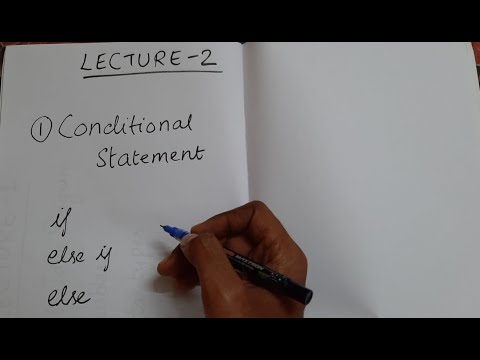 LECTURE-2
① Conditional
Statement
if
else if
else